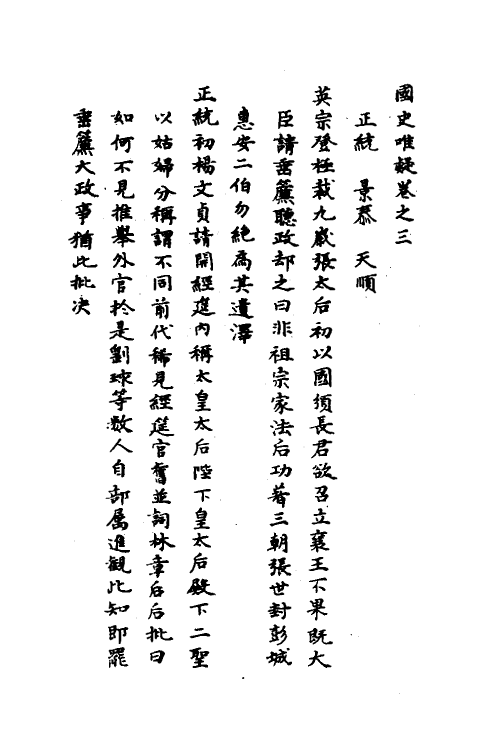 國史唯疑卷之三
正統　景泰　天順
英宗登極裁九歲張太后初以國須長君欲召立襄王不果既大
臣請垂簾聽政却之曰非祖宗家法后功著三朝張世封彭城
惠安二伯勿絶為其遺澤
正統初楊文貞請開經筵內稱太皇太后陛下皇太后殿下二聖
以姑婦分稱謂不同前代稀見經筵官舊並詞林章后后批曰
如何不見推舉外官於是劉球等數人自部屬進觀此知即罷
垂簾大政事猶此批決